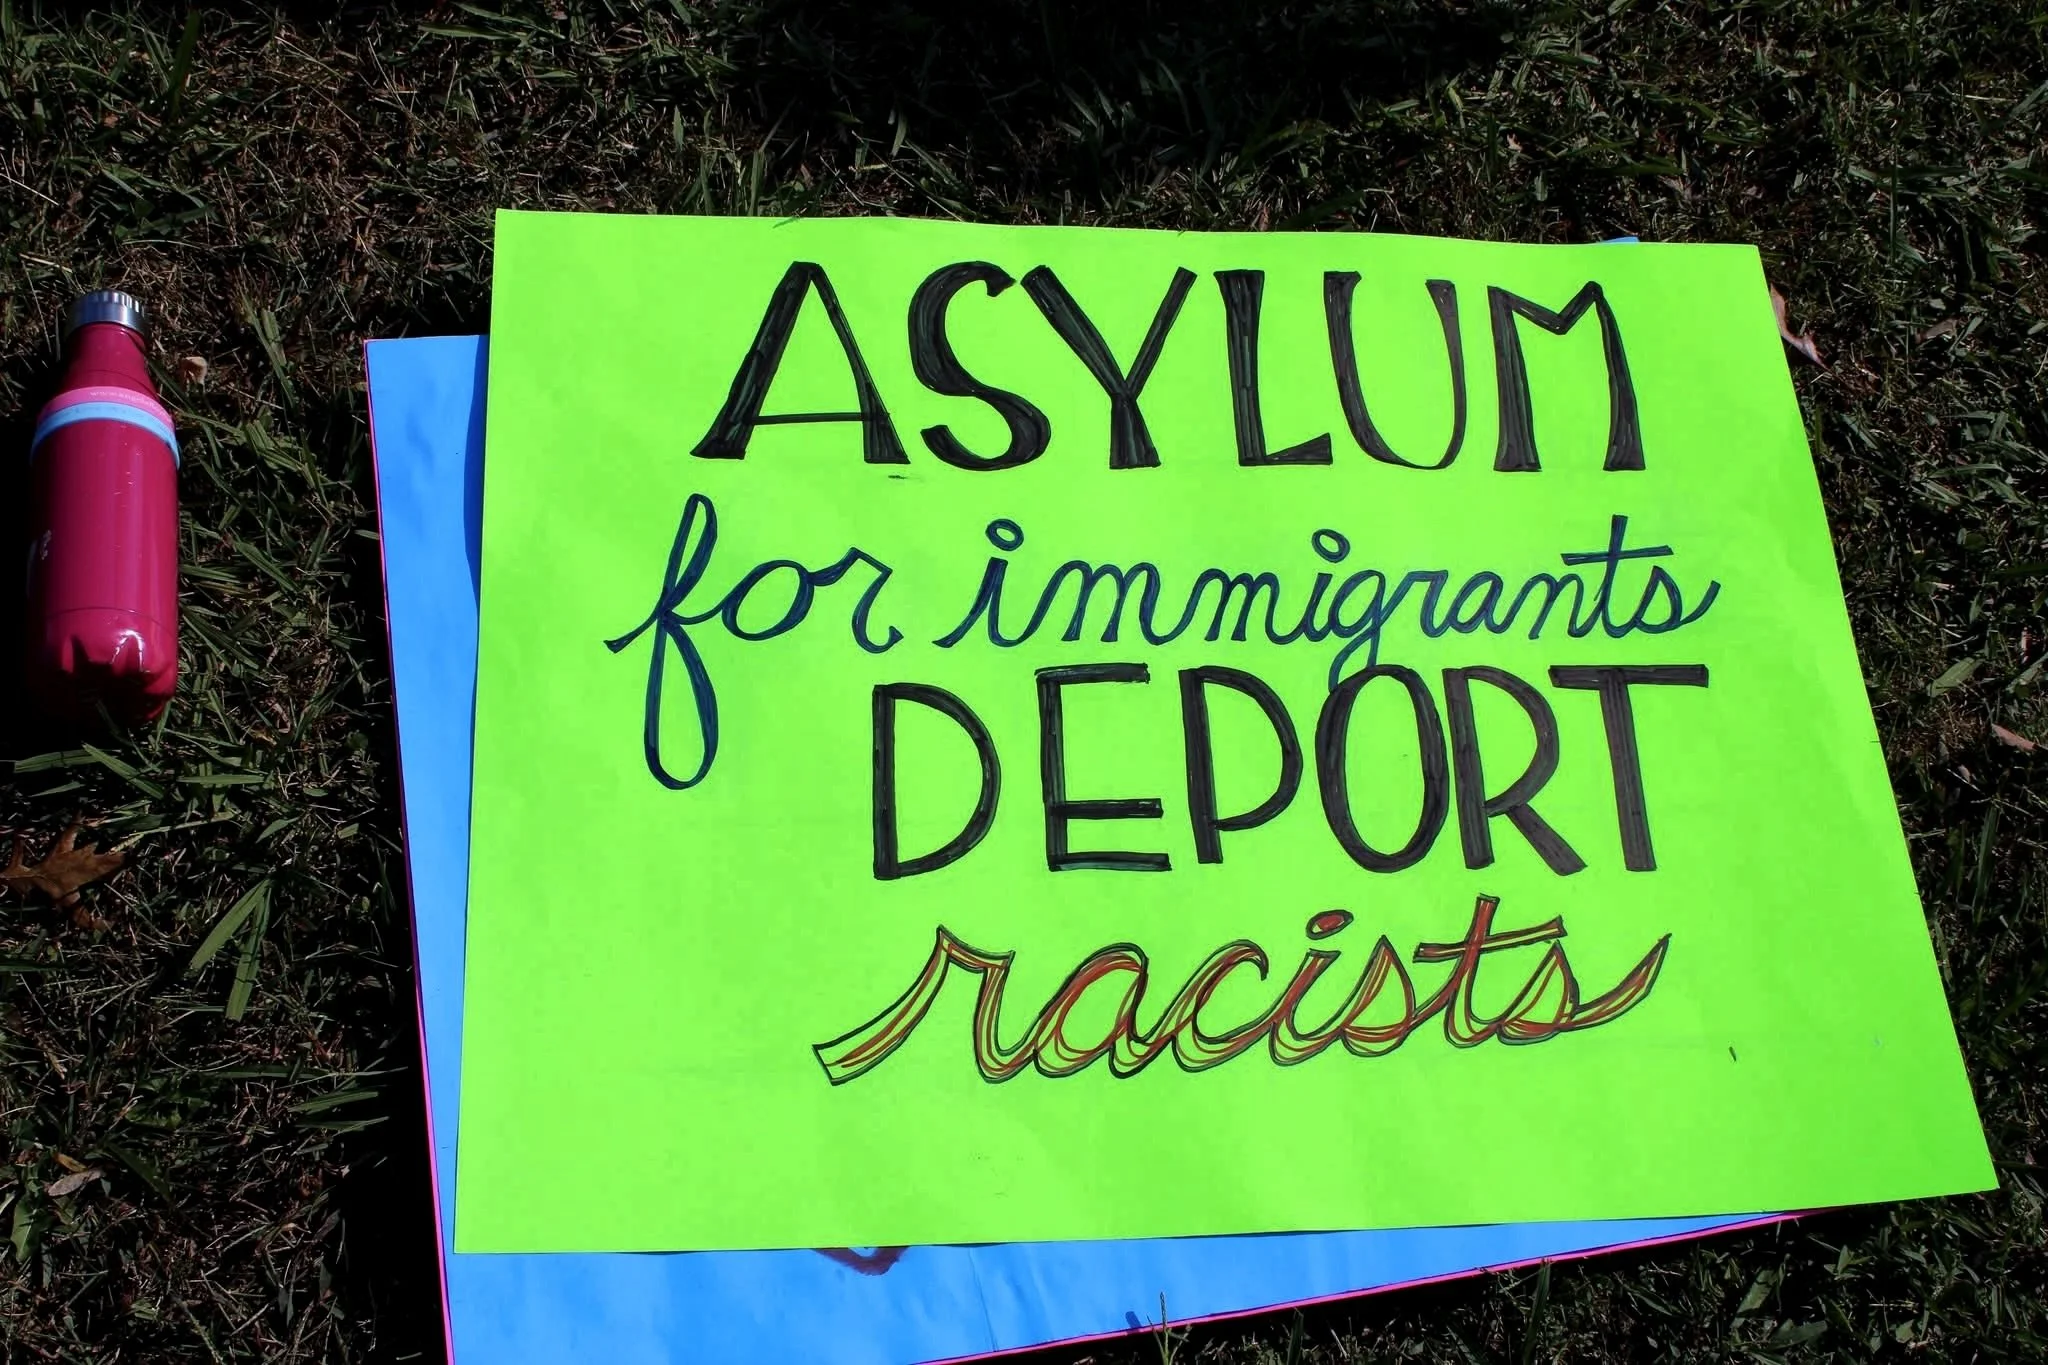 ASYLUM
for immigrants
DEPORT
racists